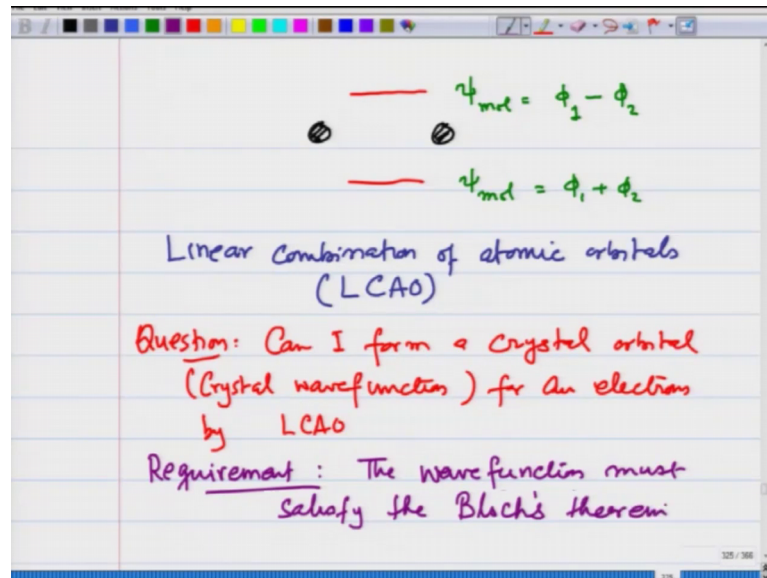 ψmol = ϕ1 − ϕ2
ψmol = ϕ1 + ϕ2
Linear combination of atomic orbitals
(LCAO)
Question: Can I form a crystal orbital
(Crystal wavefunction) for an electron
by LCAO
Requirement : The wavefunction must
satisfy the Bloch's theorem
325 / 366